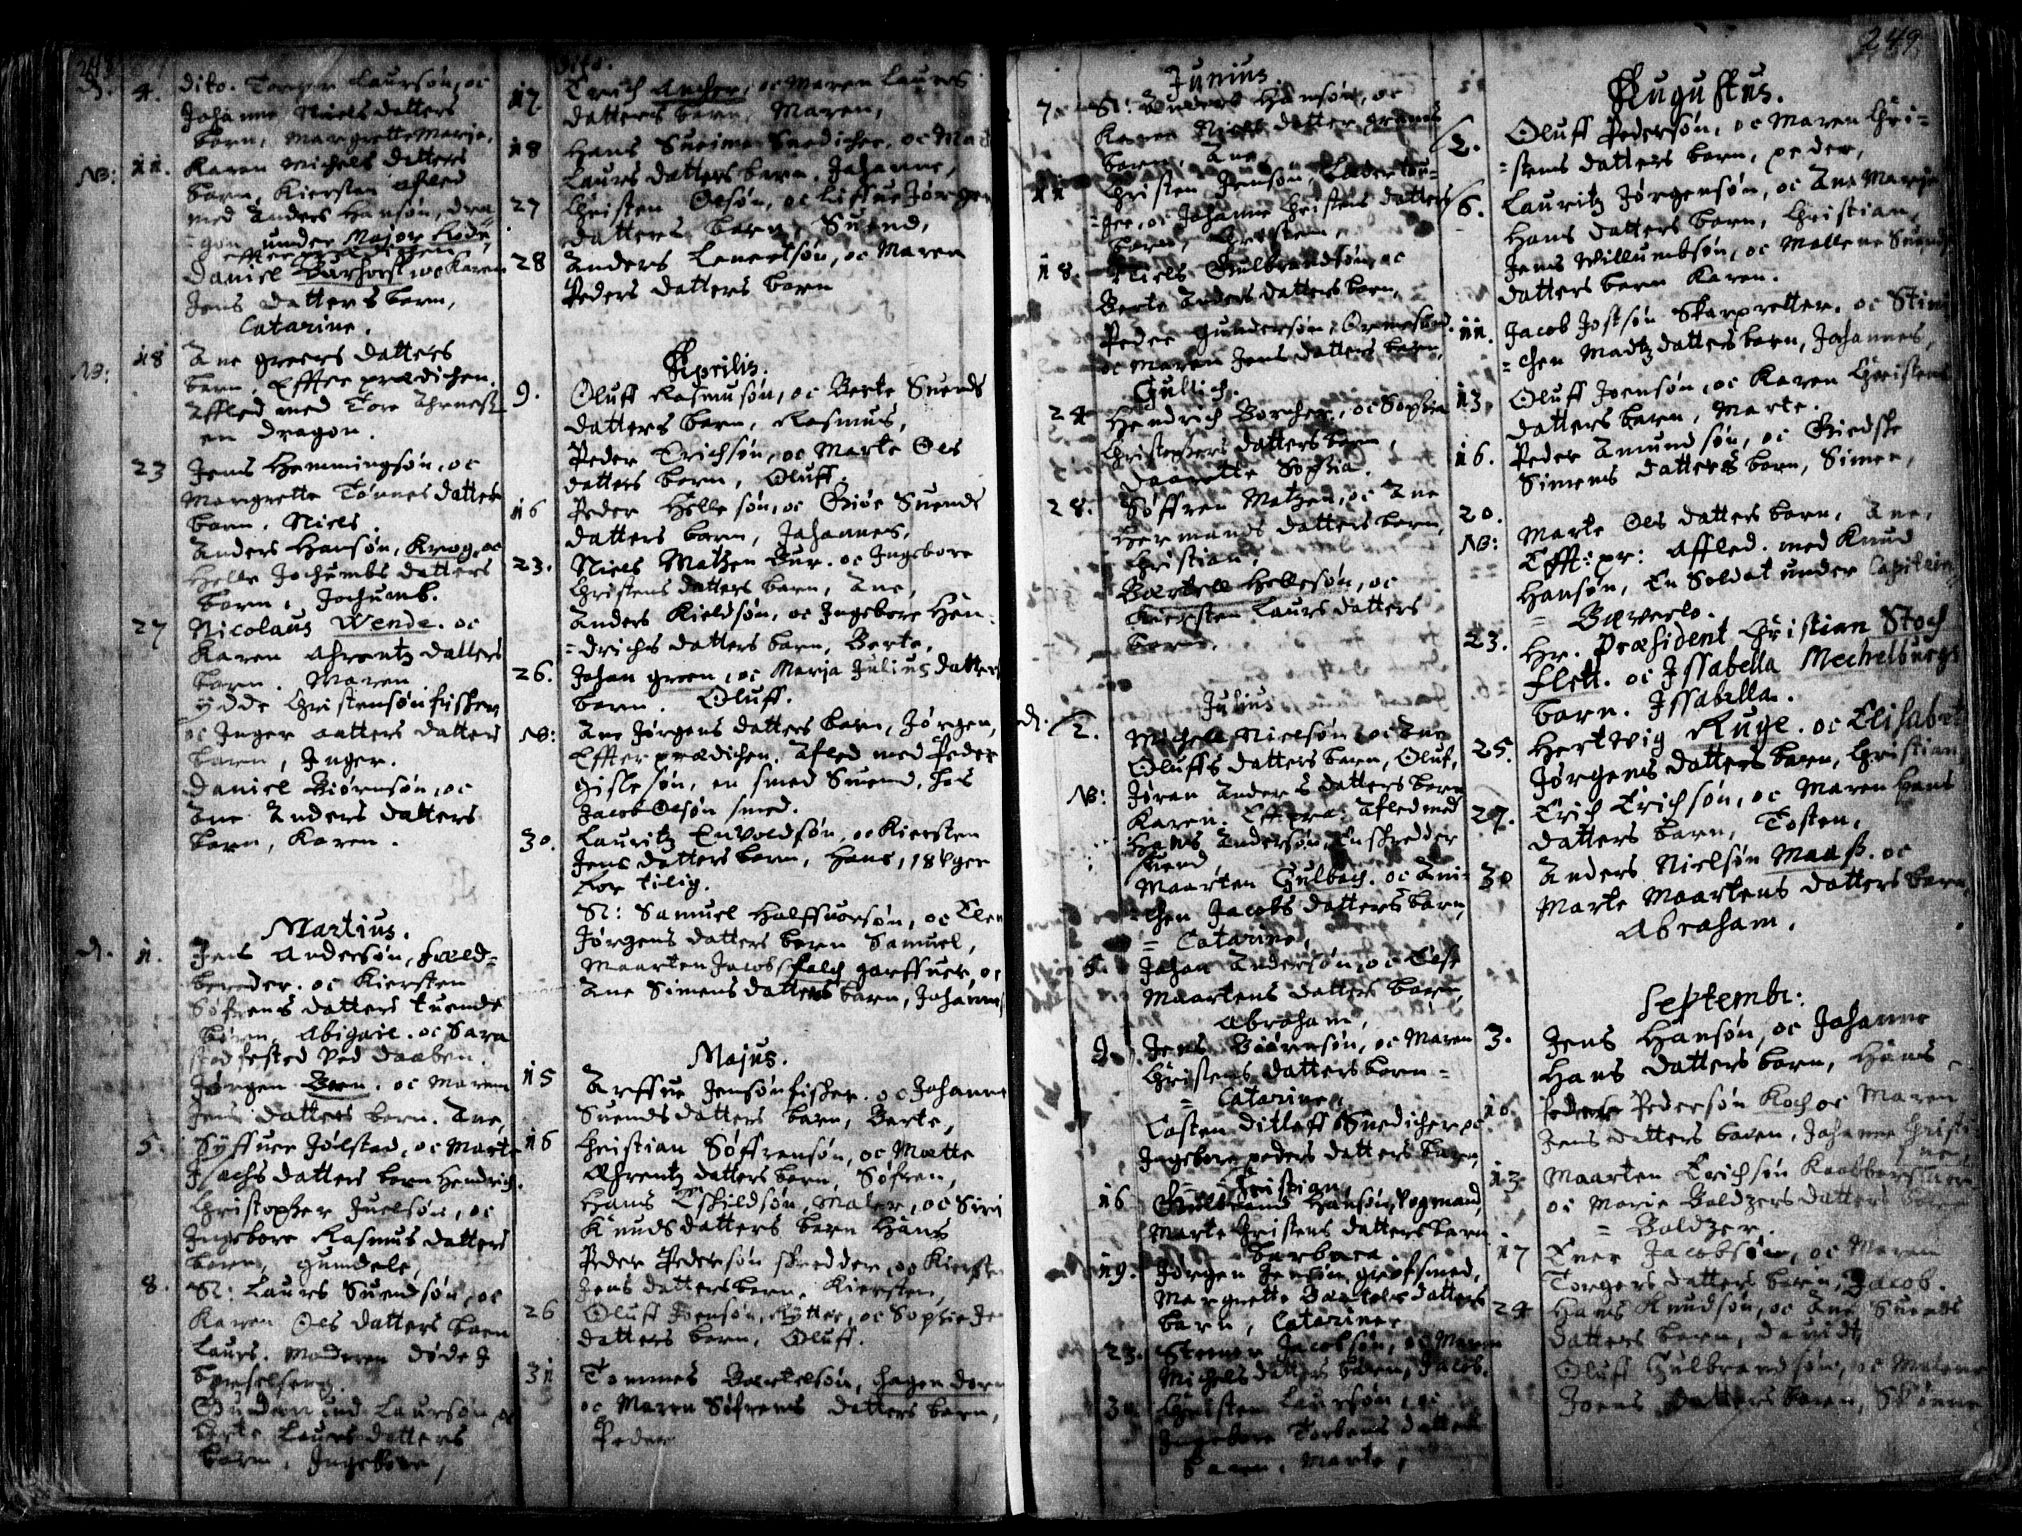 248
dito. Torger Laursøn, oc
4.
Johanne Niels datters
barn, Margrette Maria.
NB: 11. Karen Michels datters
barn, Kiersten afled
med Anders Hansøn, dra
gon under Major Rode,
effter prædichen
Daniel Barhorst, oc Karen
Jens datters barn,
Catarine.
NB: 18 Ane greers datters
barn, Effter prædichen.
Affled med Tore
en dragon.
23 Jens Hemmingsøn, oc
Margrette Tønnes datters
barn, Niels.
Anders Hansøn, Krog, oc
Helle Jochumbs datters
barn, Jochumb.
27 Nicolaus Wende. oc
Karen Ahrentz datters
barn. Maren
ÿdde Christensøn fisker,
oc Inger datters
barn, Inger.
Daniel Biørnsøn, oc
Ane Anders datters
barn, Karen.
Martius.
1. Jens Andersøn, fæld=
bereder. oc Kiersten
Søfrens datters tuende
børn, Abigaie. oc Sara
stadfested ved daaben.
Jørgen Bern. oc Maren
Jens datters barn. Ane,
5. Syffuer Jølstad, oc Marte
Isachs datters barn Hendrich.
Christopher Juelsøn, oc
Ingebore Rasmus datters
barn, Gundele,
8. Sl: Laurs Suendsøn, oc
Karen Ols datters barn
Laurs. Moderen døde I
barselseng.
Gudmund Laursøn oc
Laurs datters
barn, Ingebore,
dito.
17. Erich Ancher, oc Maren Laurs
datters barn, Maren,
18 Hans Snedicher, oc
Laurs datters barn, Johanne,
27 Christen Olsøn, oc Liffue Jørgens
datters barn, Suend,
28 Anders Lenertsøn, oc Maren
Peders datters barn
Aprilis.
9. Oluff Rasmusøn, oc Berte Suends
datters barn, Rasmus,
Peder Erichsøn, oc Marte Ols
datters barn, Oluff.
16 Peder Hellesøn, oc Giøe Suends
datters barn, Johannes,
23. Niels Matzen Bur. oc Ingebore
Christens datters barn, Ane,
Anders Kieldsøn, oc Ingebore Hen=
=drichs datters barn, Berte,
26. Johan green, oc Maria Julius datters
barn. Oluff.
NB: Ane Jørgens datters barn, Jørgen,
Effter prædichen. Afled med Peder
Gislesøn, en smed Suend, hos
Jacob Olsøn smed.
30. Lauritz Enuoldsøn, oc Kiersten
Jens datters barn, Hans, 18 uger
for tilig.
Sl: Samuel Halffuorsøn, oc Elen
Jørgens datters barn Samuel,
Maarten Jacobs falch garffuer, oc
Ane Simens datters barn, Johannes
Majus.
15 Arffue Jensøn fisker. oc Johanne
Suends datters barn, Berte,
16 Christian Søffrensøn, oc Mette
Ahrentz datters barn, Søfren,
Hans Eskildsøn, Maler, oc Siri
Knuds datters barn Hans
Peder Pedersøn skredder, oc Kiersten
Jens datters barn, Kiersten,
26 Oluff Joensøn, Rytter, oc Sophie
datters barn, Oluff.
31 Tommes Bertelsøn, Hagendorn
oc Maren Søfrens datters barn,
Peder
249.
Junius.
7. Sl: Anders Hansøn, oc
Karen Niels datter
barn, Ane
11 Christen Jensøn,
oc Johanne Christens datters
barn, Christen,
18. Niels Gulbrandsøn, oc
Berte Anders datters barn,
Peder Gundersøn,
oc Maren Jens datters barn,
Gullich.
24 Hendrich Borcher, oc Sophia
Christophers datters barn,
Daarette Sophia.
28. Søffren Matzen, oc Ane
Hermands datters barn,
Christian,
Bertell Hellesøn, oc
Kiersten Laurs datters
barn.
Julius
2. Michel Nielsøn, oc Ane
Oluffs datters barn, Oluf,
NB: Jøran Anders datters barn
Karen. Eff: præ: Afled med
Hans Andersøn, En skredder
Suend
Maarten Gulbech. oc Ani=
=chen Jacobs datters barn,
= Catarine,
5. Johan Andersøn, oc Else
Maartens datters barn,
Abraham,
9. Jens Biørnsøn, oc Maren
Christens datters barn =
= Catarine,
Casten Ditleff Snedicher, oc
Ingebore peders datters barn,
Christian,
16 Gulbrand Hansøn, Vogmand,
Marte Christens datters barn
Barbara
19. Jørgen Jensøn, grofsmed,
Margrette Bertels datters
barn, Catarine.
23. Stener Jacobsøn, oc Maren
Michels datters barn, Jacob.
30. Christen Laursøn, oc
Ingebore Torbens datters
barn, Marte,
Augustus.
2. Oluff Pedersøn, oc Maren Chri=
=stens datters barn, peder,
6. Lauritz Jørgensøn, oc Ane Maria
Hans datters barn, Christian,
Jens Willumbsøn, oc Mallene Suends
datters barn Karen.
11. Jacob Jostsøn Skarpretter. oc Stin
=chen Madtz datters barn, Johannes,
13. Oluff Joensøn, oc Karen Christens
datters barn, Marte.
16. Peder Amundsøn, oc Giedske
Simens datters barn, Simen,
20. Marte Ols datters barn, Ane,
NB: Efft: pr: Affled. med Knud
Hansøn, En Soldat under Capitein
= Bæverlo.
23. Hr. Præsident Christian Stoch
flett. oc Issabella Mechelburgs
barn. Issabella.
25. Hertvig Ruge. oc Elisabet
Jørgens datters barn, Christian,
27. Erich Erichsøn, oc Maren Hans
datters barn, Tosten,
30 Anders Nielsøn Maass. oc
Marte Maartens datters barn,
Abraham.
Septembr:
3. Jens Hansøn, oc Johanne
Hans datters barn, Hans
10. Peder Pedersøn Koch oc Maren
Jens datters barn, Johanne Christi
ne
13. Maarten Erichsøn Kaabberslaer
oc Marie Baldzers datters barn
= Baldzer.
17 Ener Jacobsøn, oc Maren
Torgers datters barn, Jacob.
24 Hans Knudsøn, oc Ane Suends
datters barn, Davidt,
Oluff Gulbrandsøn, oc Malene
Joens datters barn,